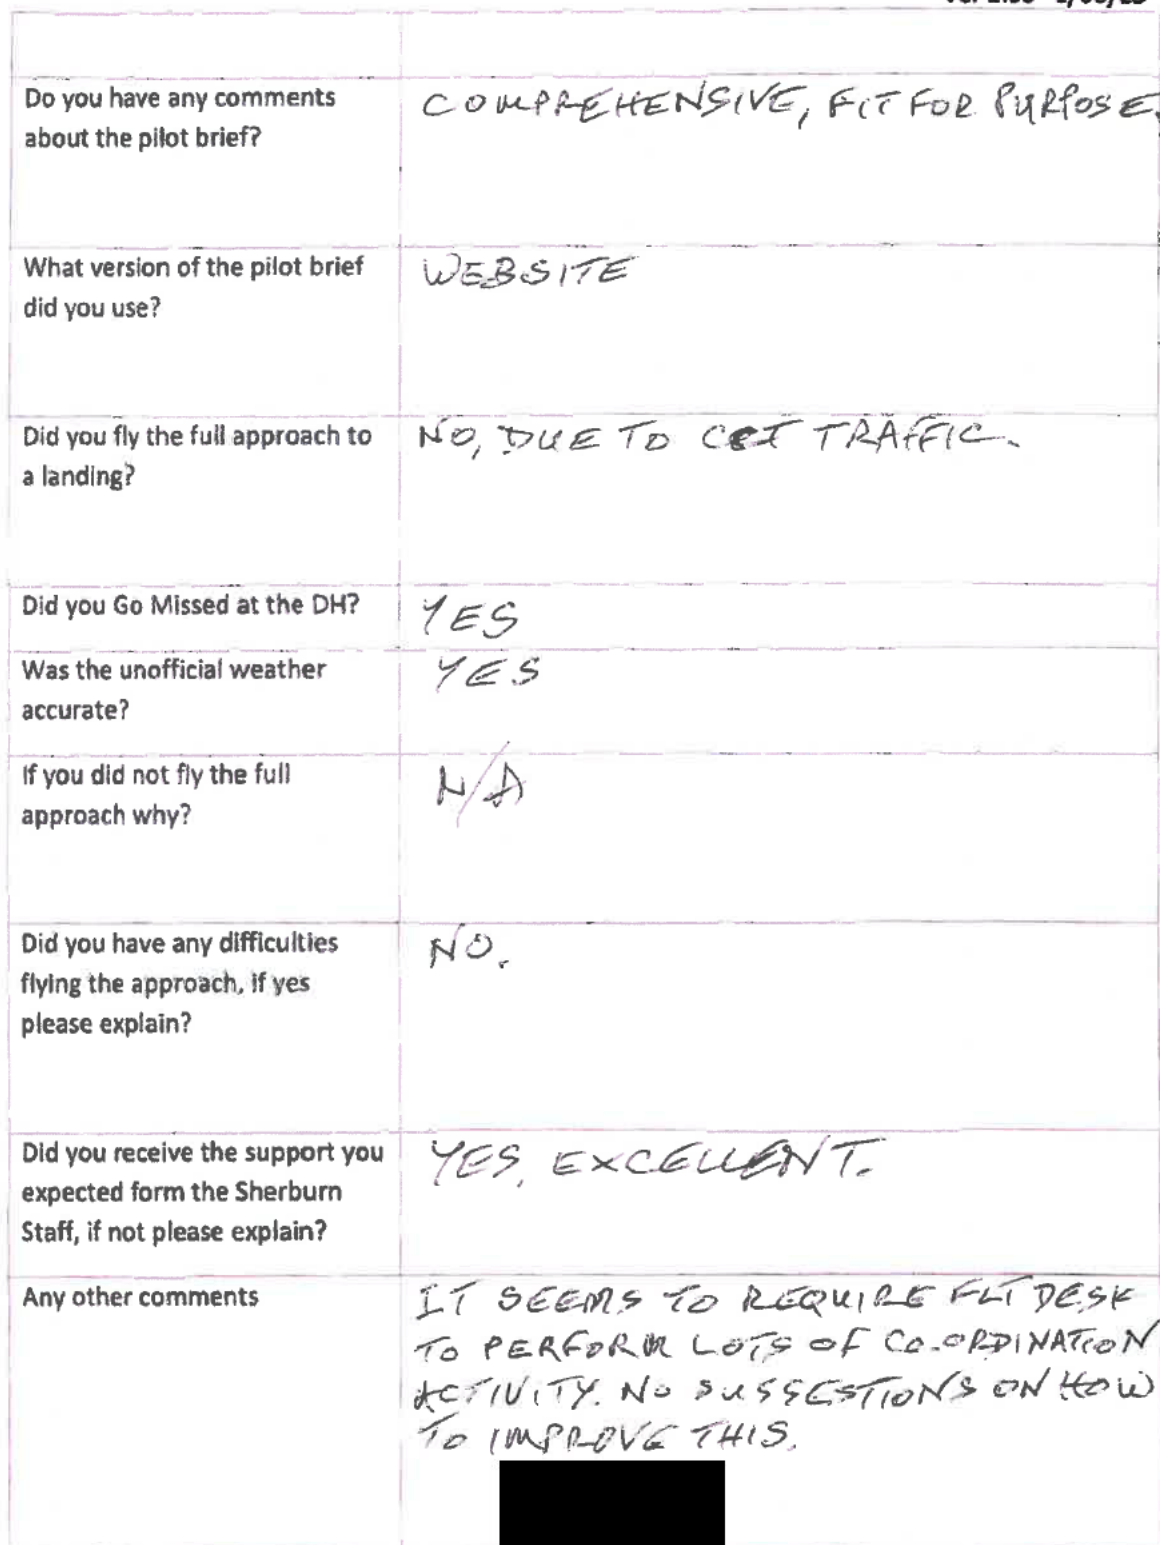 Do you have any comments
about the pilot brief?
COMPREHENSIVE, FIT FOR PURPOSE.
What version of the pilot brief
did you use?
WEBSITE
Did you fly the full approach to
a landing?
NO, DUE TO CCT TRAFFIC.
Did you Go Missed at the DH?
YES
Was the unofficial weather
accurate?
YES
If you did not fly the full
approach why?
N/A
Did you have any difficulties
flying the approach, if yes
please explain?
NO.
Did you receive the support you
expected form the Sherburn
Staff, if not please explain?
YES, EXCELLENT.
Any other comments
IT SEEMS TO REQUIRE FLT DESK
TO PERFORM LOTS OF CO-ORDINATION
ACTIVITY. NO SUGGESTIONS ON HOW
TO IMPROVE THIS.